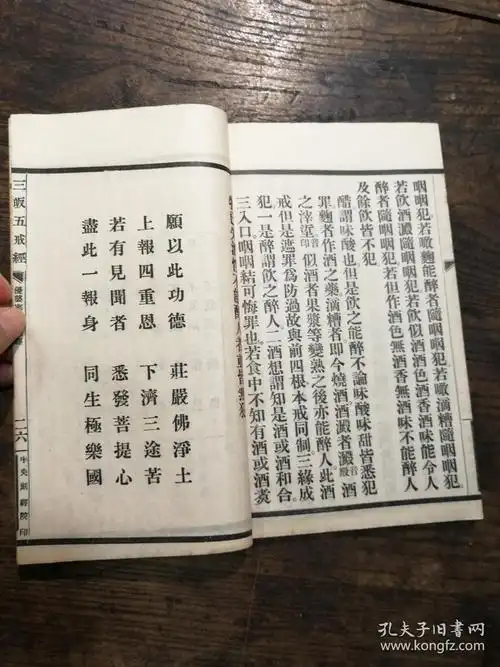 咽咽犯。若噉麴能醉者隨咽咽犯。若噉滴糟隨咽咽犯。
若飲酒澱隨咽咽犯若飲似酒酒色酒香酒味能令人
醉者隨咽咽犯若但作酒色無酒香無酒味不能醉人
及餘飲皆不犯
酷謂味酸也但是飲之能醉不論味酸味甜皆悉犯
罪麴者作酒之藥滴糟者即今燒酒酒澱者澱音 酒
之滓埿 似酒者果漿等變熟之後亦能醉人此酒
戒但是遮罪為防過故與前四根本戒同制三緣成
犯一是醉謂飲之醉人二酒想謂知是酒或酒和合
三入口咽咽結可悔罪也若食中不知有酒或酒煑
願以此功德 莊嚴佛淨土
上報四重恩 下濟三途苦
若有見聞者 悉發菩提心
盡此一報身 同生極樂國
三皈五戒經 優婆 二六 中央刻經院印
孔夫子旧书网
www.kongfz.com